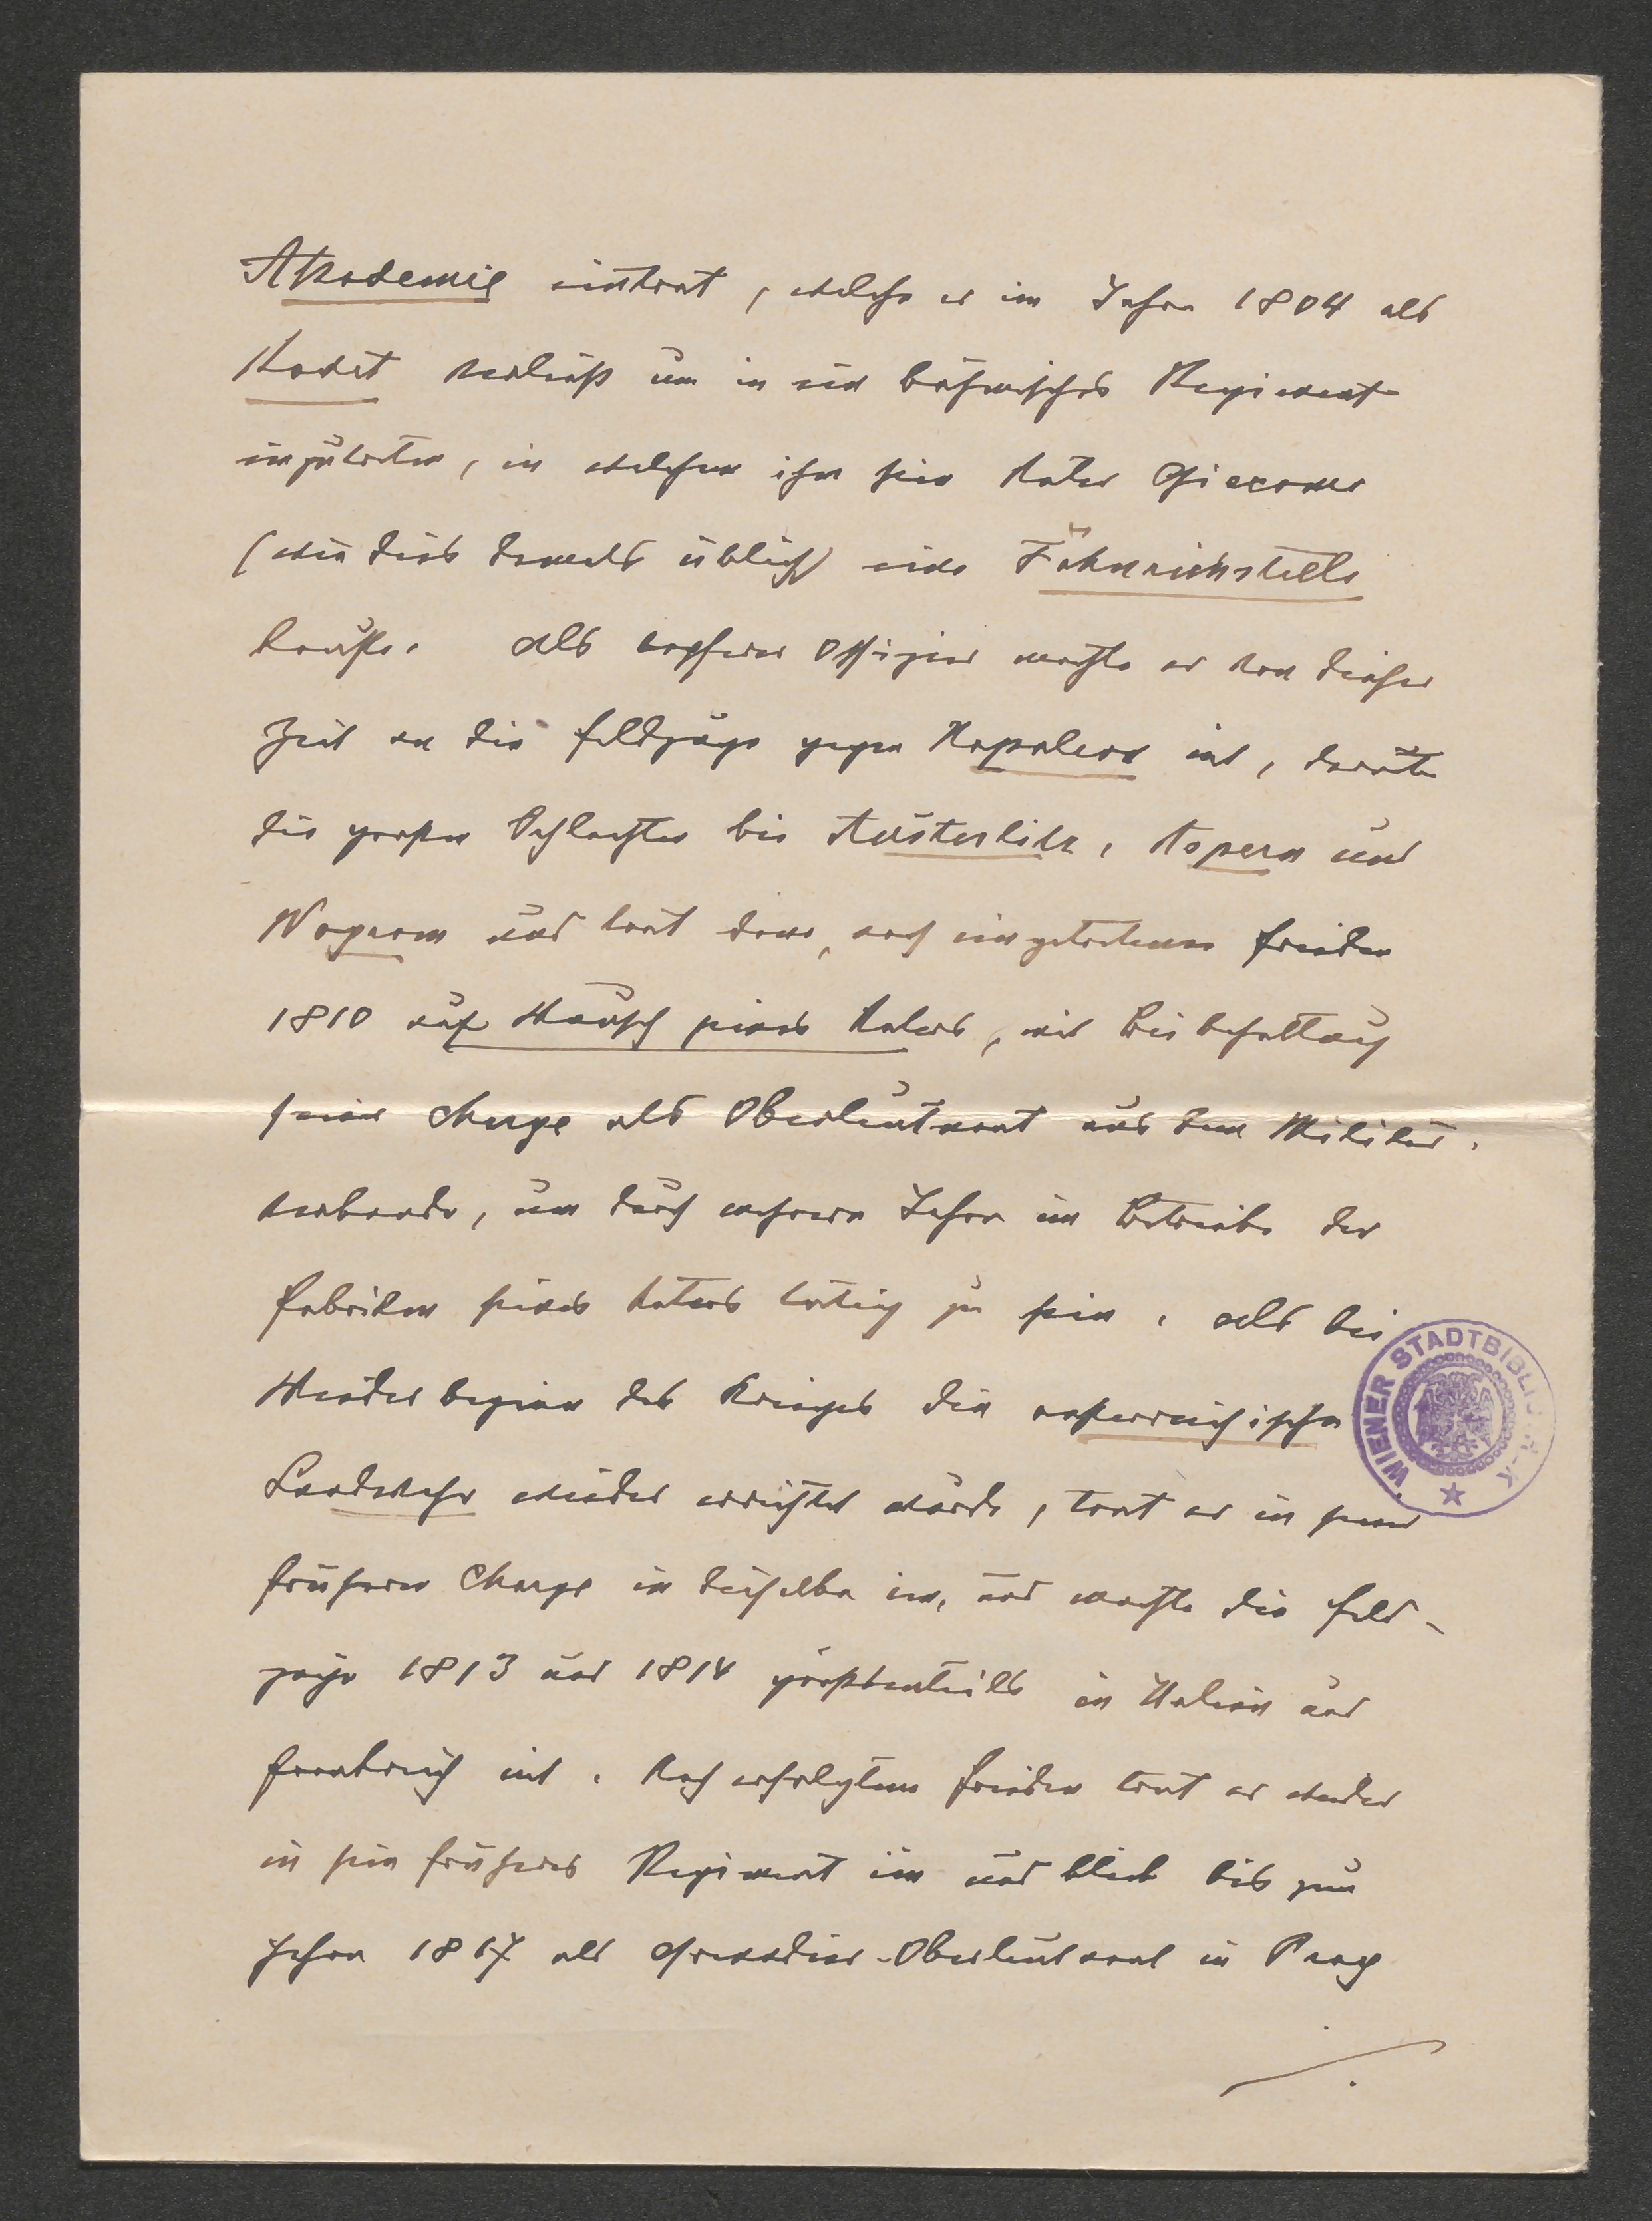 Akademie eintrat, welche er im Jahre 1804 als
Kadet verließ um in ein böhmisches Regiment
einzutreten, in welchem ihm sein Vater Giacomo
(wie dies damals üblich) eine Fähnrichstelle
kaufte. Als tapferer Offizier machte er von dieser
Zeit an die Feldzüge gegen Napoleon mit, darunter
die großen Schlachten bei Austerlitz, Aspern und
Wagram und trat dann, nach eingetretenem Frieden
1810 auf Wunsch seines Vaters, mit Beibehaltung
seiner Charge als Oberleutnant aus dem Militär-
verbande, um durch mehrere Jahre im Betriebe der
Fabriken seines Vaters tätig zu sein. Als bei
Wiederbeginn des Krieges die oesterreichische
Landwehr wieder errichtet wurde, trat er in seiner
früheren Charge in dieselbe ein, und machte die Feld-
züge 1813 und 1814 größtenteils in Italien und
Frankreich mit. Nach erfolgtem Frieden trat er wieder
in sein früheres Regiment ein und blieb bis zum
Jahre 1817 als Grenadier-Oberleutnant in Prag
WIENER STADTBIBLIOTHEK